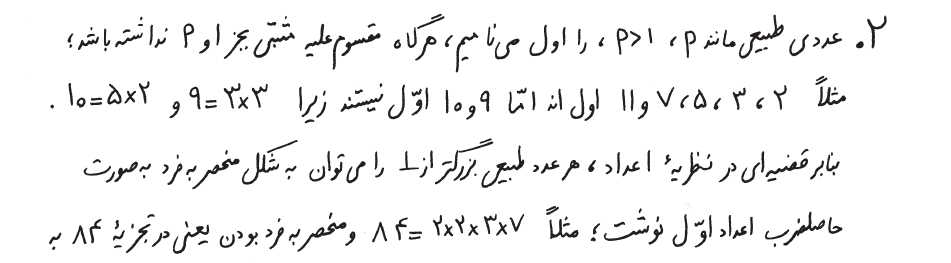 ۲. عددی طبیعی مانند p ، p>۱ ، را اول می‌نامیم، هرگاه مقسوم‌علیه مثبتی بجز ۱ و p نداشته باشد؛
مثلاً ۲ ، ۳ ، ۵ ، ۷ و ۱۱ اول اند امّا ۹ و ۱۰ اوّل نیستند زیرا ۹=۳×۳ و ۱۰=۵×۲ .
بنابر قضیه‌ای در نظریهٔ اعداد ، هر عدد طبیعی بزرگتر از ۱ را می‌توان به شکل منحصر به فرد به صورت
حاصلضرب اعداد اوّل نوشت؛ مثلاً ۸۴=۲×۲×۳×۷ و منحصر به فرد بودن یعنی در تجزیهٔ ۸۴ به